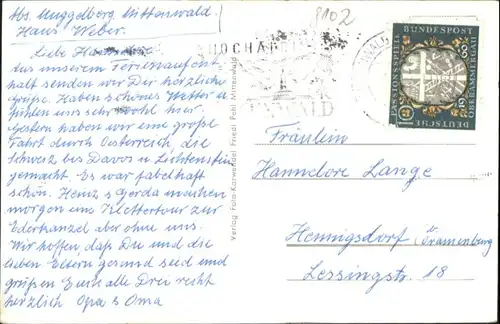 Abs. Muggelberg Mittenwald
Haus Weber.
Liebe
Aus unserem Ferienaufent-
halt senden wir Dir herzliche
Grüße. Haben schönes Wetter u.
fühlen uns sehr wohl hier.
Gestern haben wir eine große
Fahrt durch Oesterreich, die
Schweiz bis Davos u. Lichtenstein
gemacht. Es war fabelhaft
schön. Heinz & Gerda machen
morgen eine Klettertour zur
Ederkanzel aber ohne uns.
Wir hoffen, daß Du und die
lieben Eltern gesund seid und
grüßen Euch alle Drei recht
herzlich Opa & Oma
Verlag Foto-Karwendel Friedl Pohl Mittenwald
8102
HOCHALPEN
WALD
DEUTSCHE BUNDESPOST
PASSIONSSPIELE 1960 OBERAMMERGAU
Fräulein
Hannelore Lange
Hennigsdorf (Oranienburg
Lessingstr. 18